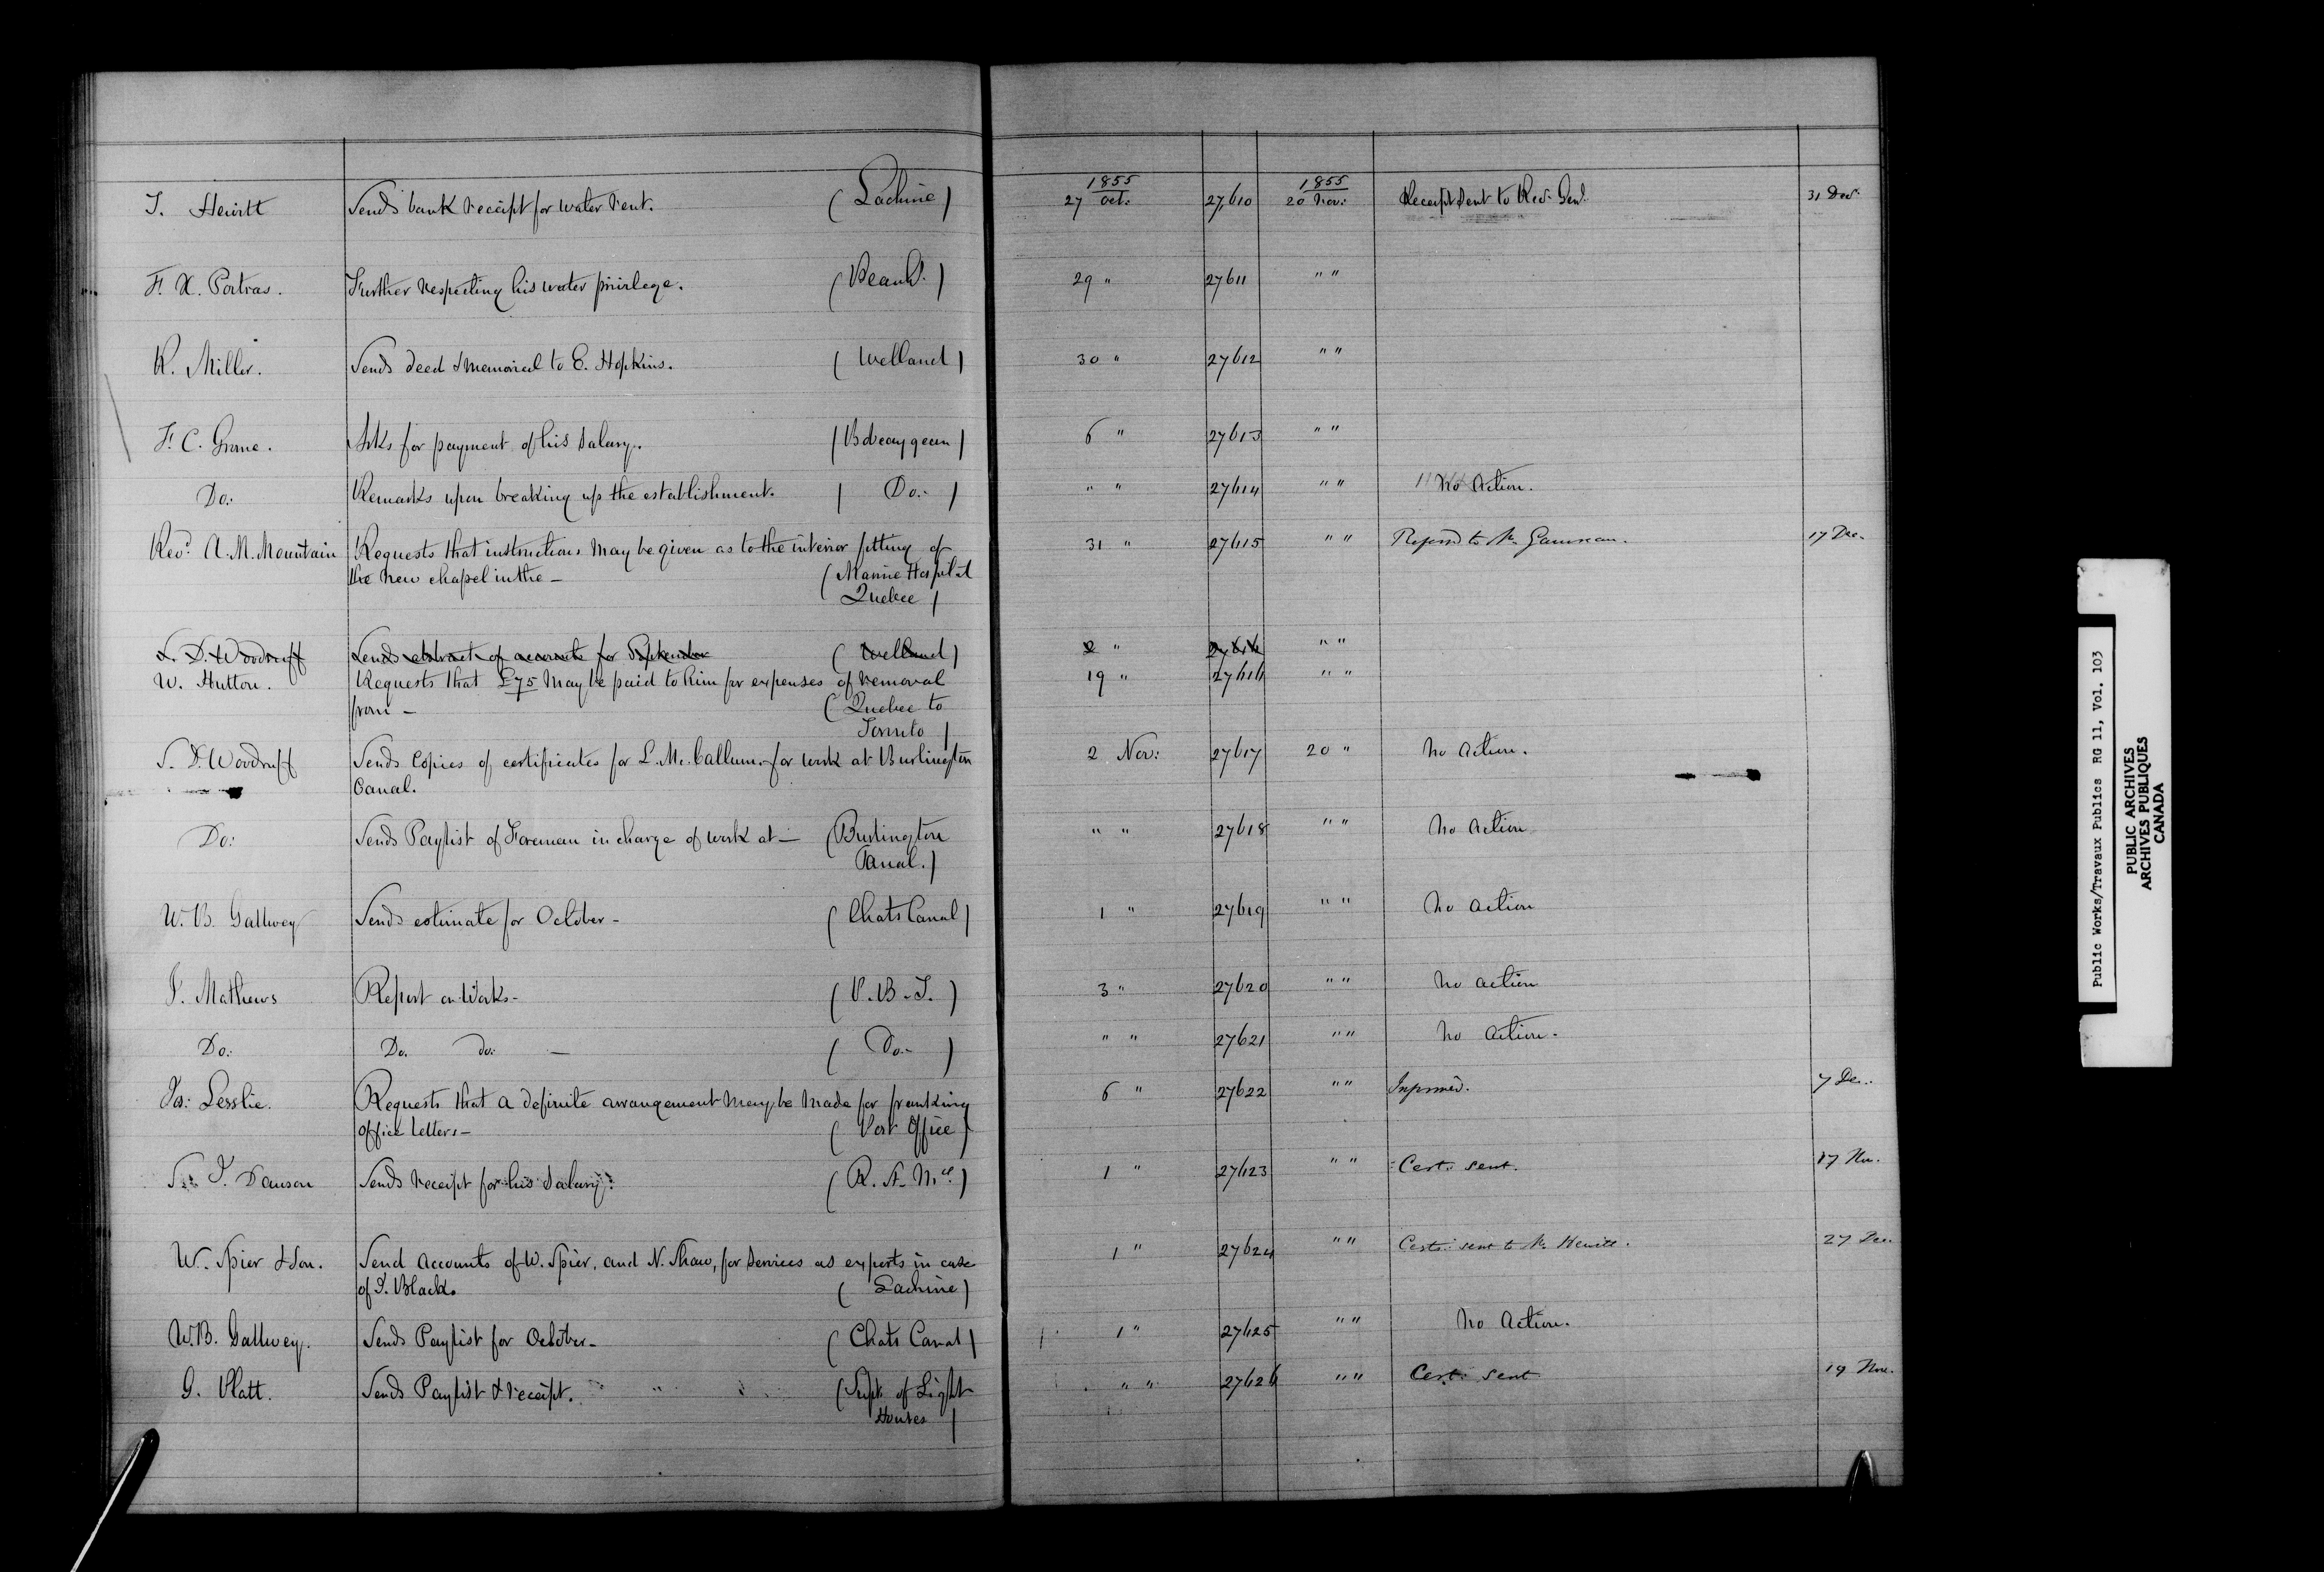 1855 1855
J. Hewitt Sends bank receipt for water rent. (Lachine) 27 Oct: 27,610 20 Nov: Receipt sent to Rec. Genl. 31 Dec:
F. X. Portras. Further respecting his water privilege. (Beauh.) 29 " 27611 " "
R. Miller. Sends deed & memorial to E. Hopkins. (Welland) 30 " 27612 " "
F. C. Grome. Asks for payment of his salary. (Bobcaygeon) 6 " 27613 " "
Do: Remarks upon breaking up the establishment. (Do:) " " 27614 " " No Action.
Revd. A. M. Mountain Requests that instructions may be given as to the interior fitting of 31 " 27615 " " Referred to Mr. Gauvreau. 17 Dec.
the new chapel in the — (Marine Hospital
Quebec)
S. D. Woodruff Sends abstract of accounts for September (Welland) 2 " 27616 " "
W. Hutton. Requests that £75 may be paid to him for expenses of removal 19 " 27616 " "
from — (Quebec to
Toronto)
S. D. Woodruff Sends Copies of certificates for L. Mc.Callum for work at Burlington 2 Nov: 27617 20 " No Action.
Canal.
Do: Sends Paylist of Foreman in charge of work at — (Burlington " " 27618 " " No Action
Canal.)
W. B. Gallwey Sends estimate for October - (Chats Canal) 1 " 27619 " " No Action
J. Mathews Report on Works - (P. B. I.) 3 " 27620 " " No Action
Do: Do. do: — (Do:) " " 27621 " " No Action.
Jas: Lesslie. Requests that a definite arrangement may be made for franking 6 " 27622 " " Informed. 7 Dec.
office letters — (Post Office)
J. Dawson Sends receipt for his salary. (R. A. Mcl.) 1 " 27623 " " Cert: sent. 17 Nov.
W. Spier & Son. Send accounts of W. Spier, and N. Shaw, for services as experts in case 1 " 27624 " " Certs: sent to Mr. Hewitt. 27 Dec.
of J. Black. (Lachine)
W. B. Gallwey. Sends Paylist for October - (Chats Canal) 1 " 27625 " " No Action.
G. Platt. Sends Paylist & receipt. (Supt. of Light " " 27626 " " Cert: sent 19 Nov.
Houses)
Public Works/Travaux Publics RG 11, Vol. 103
PUBLIC ARCHIVES
ARCHIVES PUBLIQUES
CANADA